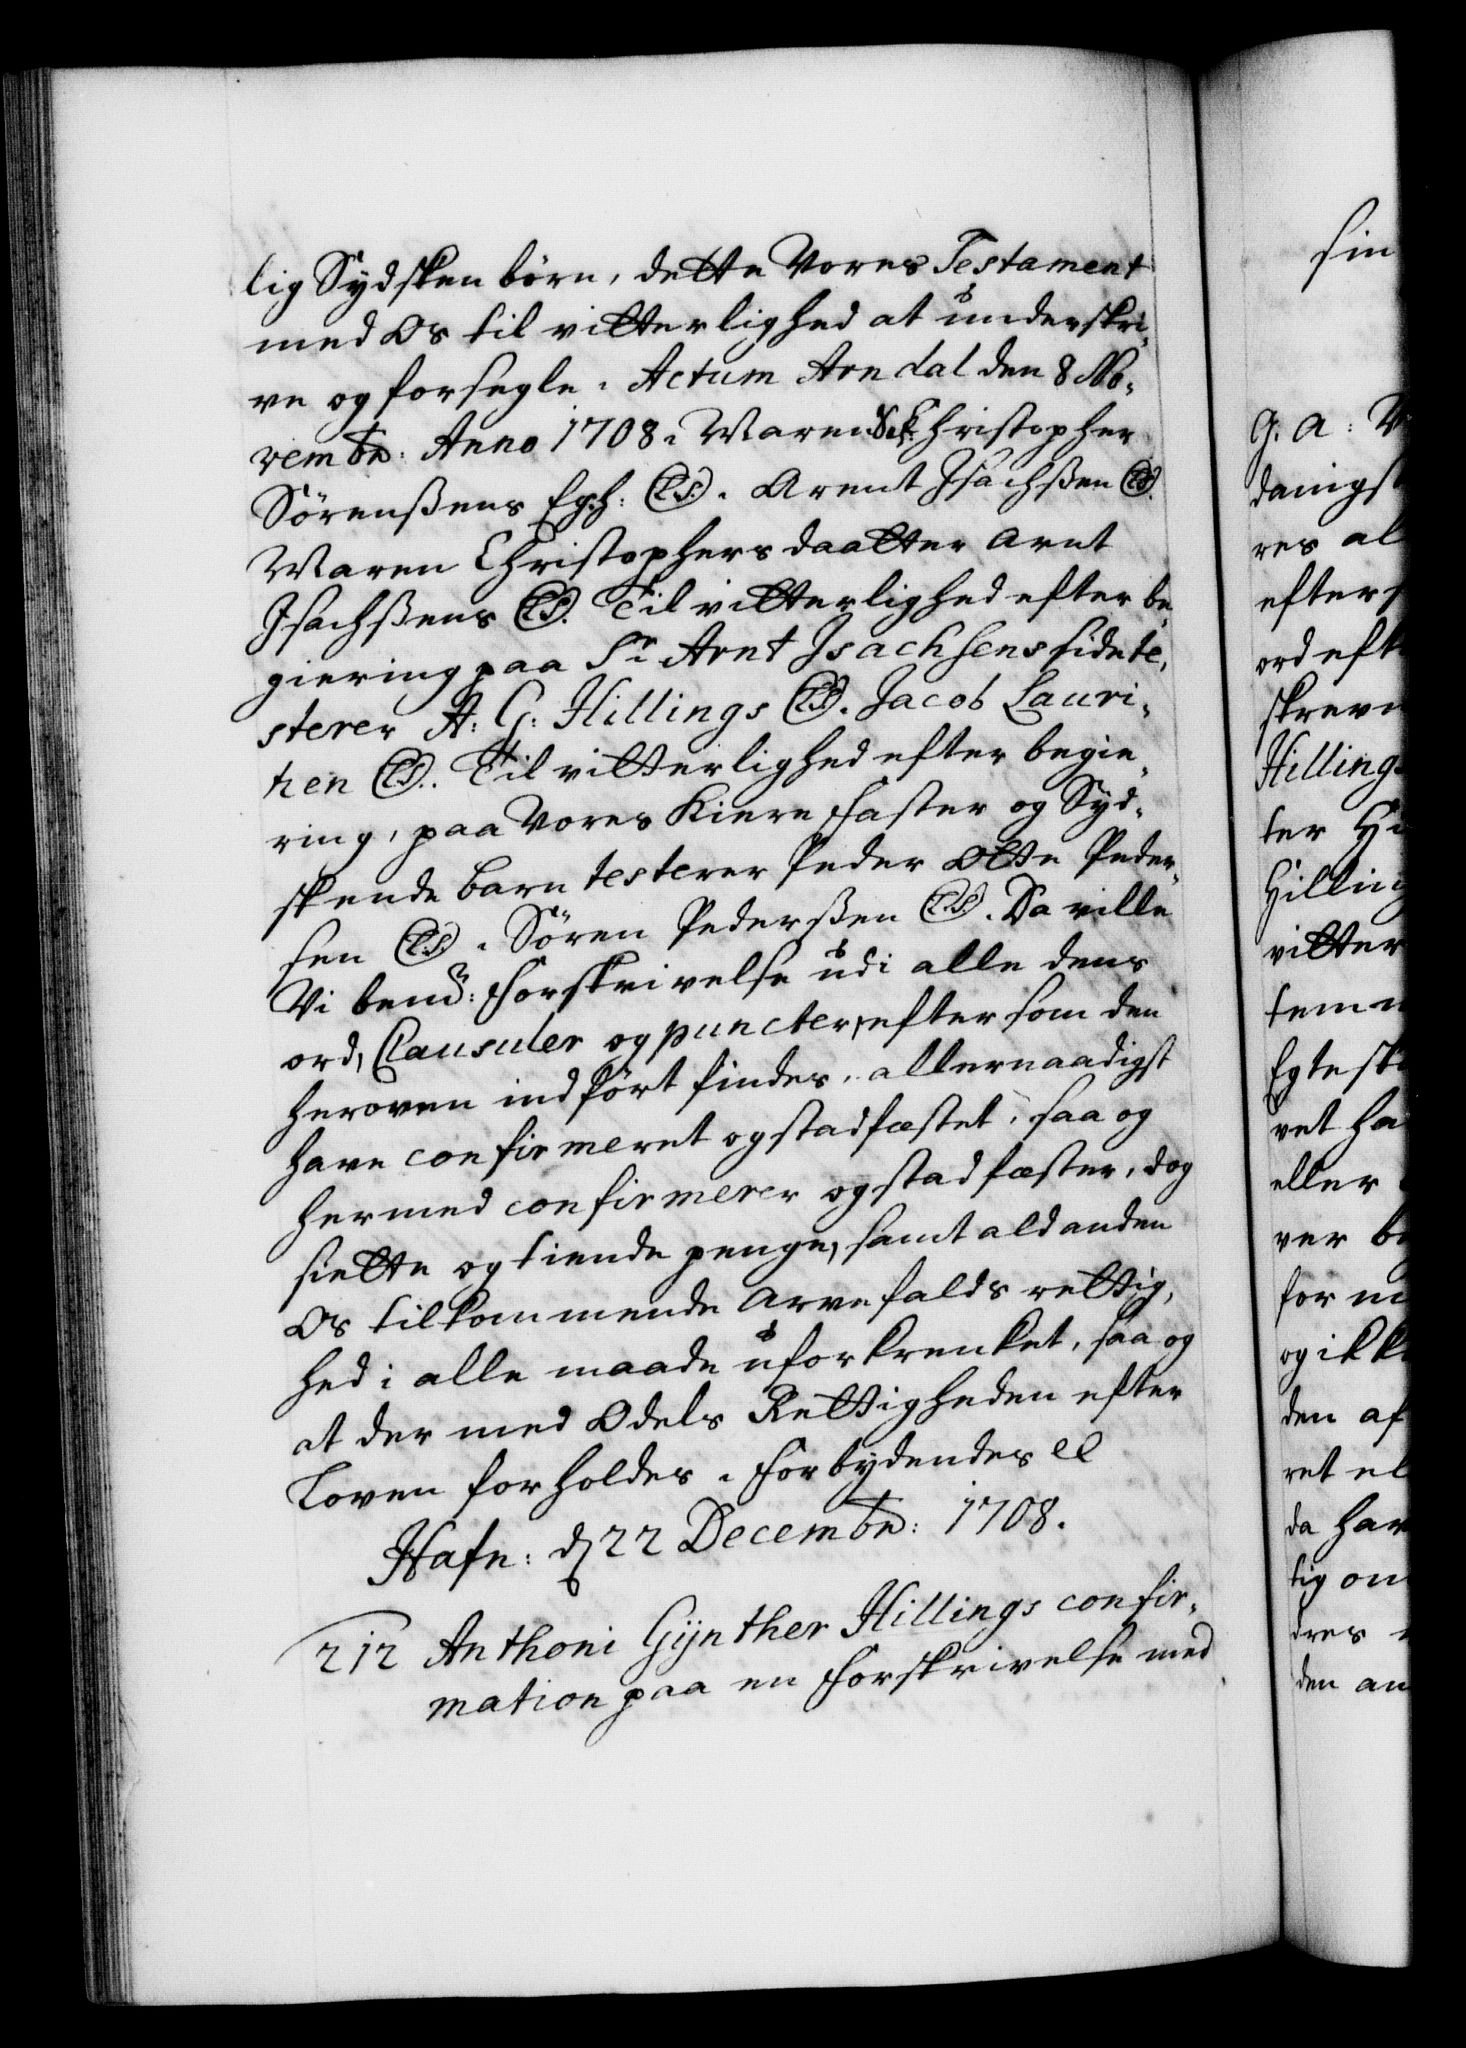 lig Sydsken börn, dette Vores Testament
med Os til vitterlighed at underskri,
ve og forsegle. Actum Arndal den 8 No,
vembr: Anno 1708. Maren Christopher
Sörenßens Egh: (LS). Arent Isachßen (LS)
Maren Christophers daatter Arnt
Isachßens (LS). Til vitterlighed efter be,
giering paa Sr Arnt Isachsens side te,
sterer A: G: Hillings (LS). Jacob Lauri,
tzen (LS). Til vitterlighed efter begie,
ring, paa Vores Kiere Faster og Syd,
skende barn testerer Peder Otte Peder,
sen (LS). Sören Pederßen (LS). Da ville
Vi bemte: Forskrivelse udi alle dens
ord, Clausuler og puncter, eftersom den
heroven indfört findes, allernaadigst
have confirmeret og stadfæstet, saa og
hermed confirmerer og stadfæster, dog
siette og tiende penge, samt ald anden
Os tilkommende Arvefalds rettig,
hed i alle maade uforkrenket, saa og
at der med Odels Rettigheden efter
Loven forholdes. Forbydendes ee
Hafn: d 22 Decembr: 1708.
212 Anthoni Gÿnther Hillings confir,
mation paa en Forskrivelse med
sin
G. A: V
danigst
res al
efters
ord eft
skrevn
Hillings
ter Hi
Hilling
vitter
temm
Egtesk
vet ha
eller
ver be
for m
og ikke
den af
ret el
da hav
tig om
dres
den an